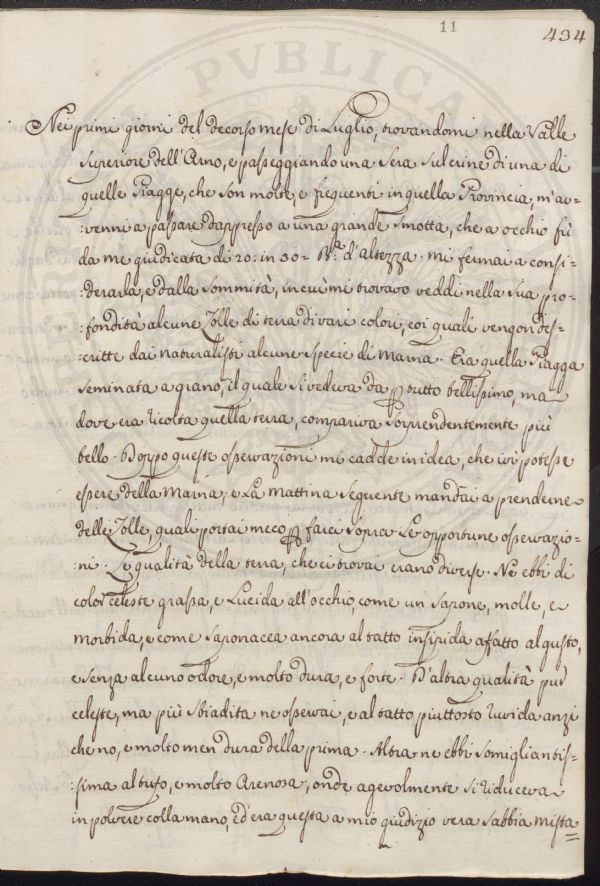 11
434
Nei primi giorni del decorso mese di Luglio, trovandomi nella Valle
Superiore dell'Arno, e passeggiando una Sera Sul crine di una di
quelle Piagge, che son molte, e frequenti in quella Provincia, m'av-
:venni a passare dappresso a una grande Smotta, che a occhio fù
da me giudicata di 20: in 30= B.ª d'altezza. mi fermai a consi-
:derarla, e dalla Sommità, in cui mi trovavo veddi nella Sua pro-
:fondità alcune Zolle di terra di vari colori, coi quali vengon des-
:critte dai naturalisti alcune specie di Marna. Era quella Piagga
Seminata a grano, il quale Si vedeva da p tutto bellissimo, ma
dove era ricolta quella terra, compariva Sorprendentemente più
bello. Doppo queste osservazioni mi cadde in idea, che ivi potesse
essere della Marna, e La mattina Seguente mandai a prenderne
delle Zolle, quali portai meco p farci Sopra Le opportune osservazio-
:ni. Le qualità della terra, che ci trovai erano diverse. Ne ebbi di
color celeste grassa, e Lucida all'occhio, come un Sapone, molle, e
morbida, e come Saponacea ancora al tatto insipida affatto al gusto,
e Senza alcuno odore, e molto dura, e forte. D'altra qualità pur
celeste, ma più Sbiadita ne osservai, e al tatto piuttosto ruvida anzi
che no, e molto men dura della prima. Altra ne ebbi Somigliantis-
:sima al tufo, e molto Arenosa, onde agevolmente Si riduceva
in polvere colla mano, ed era questa a mio giudizio vera Sabbia mista=